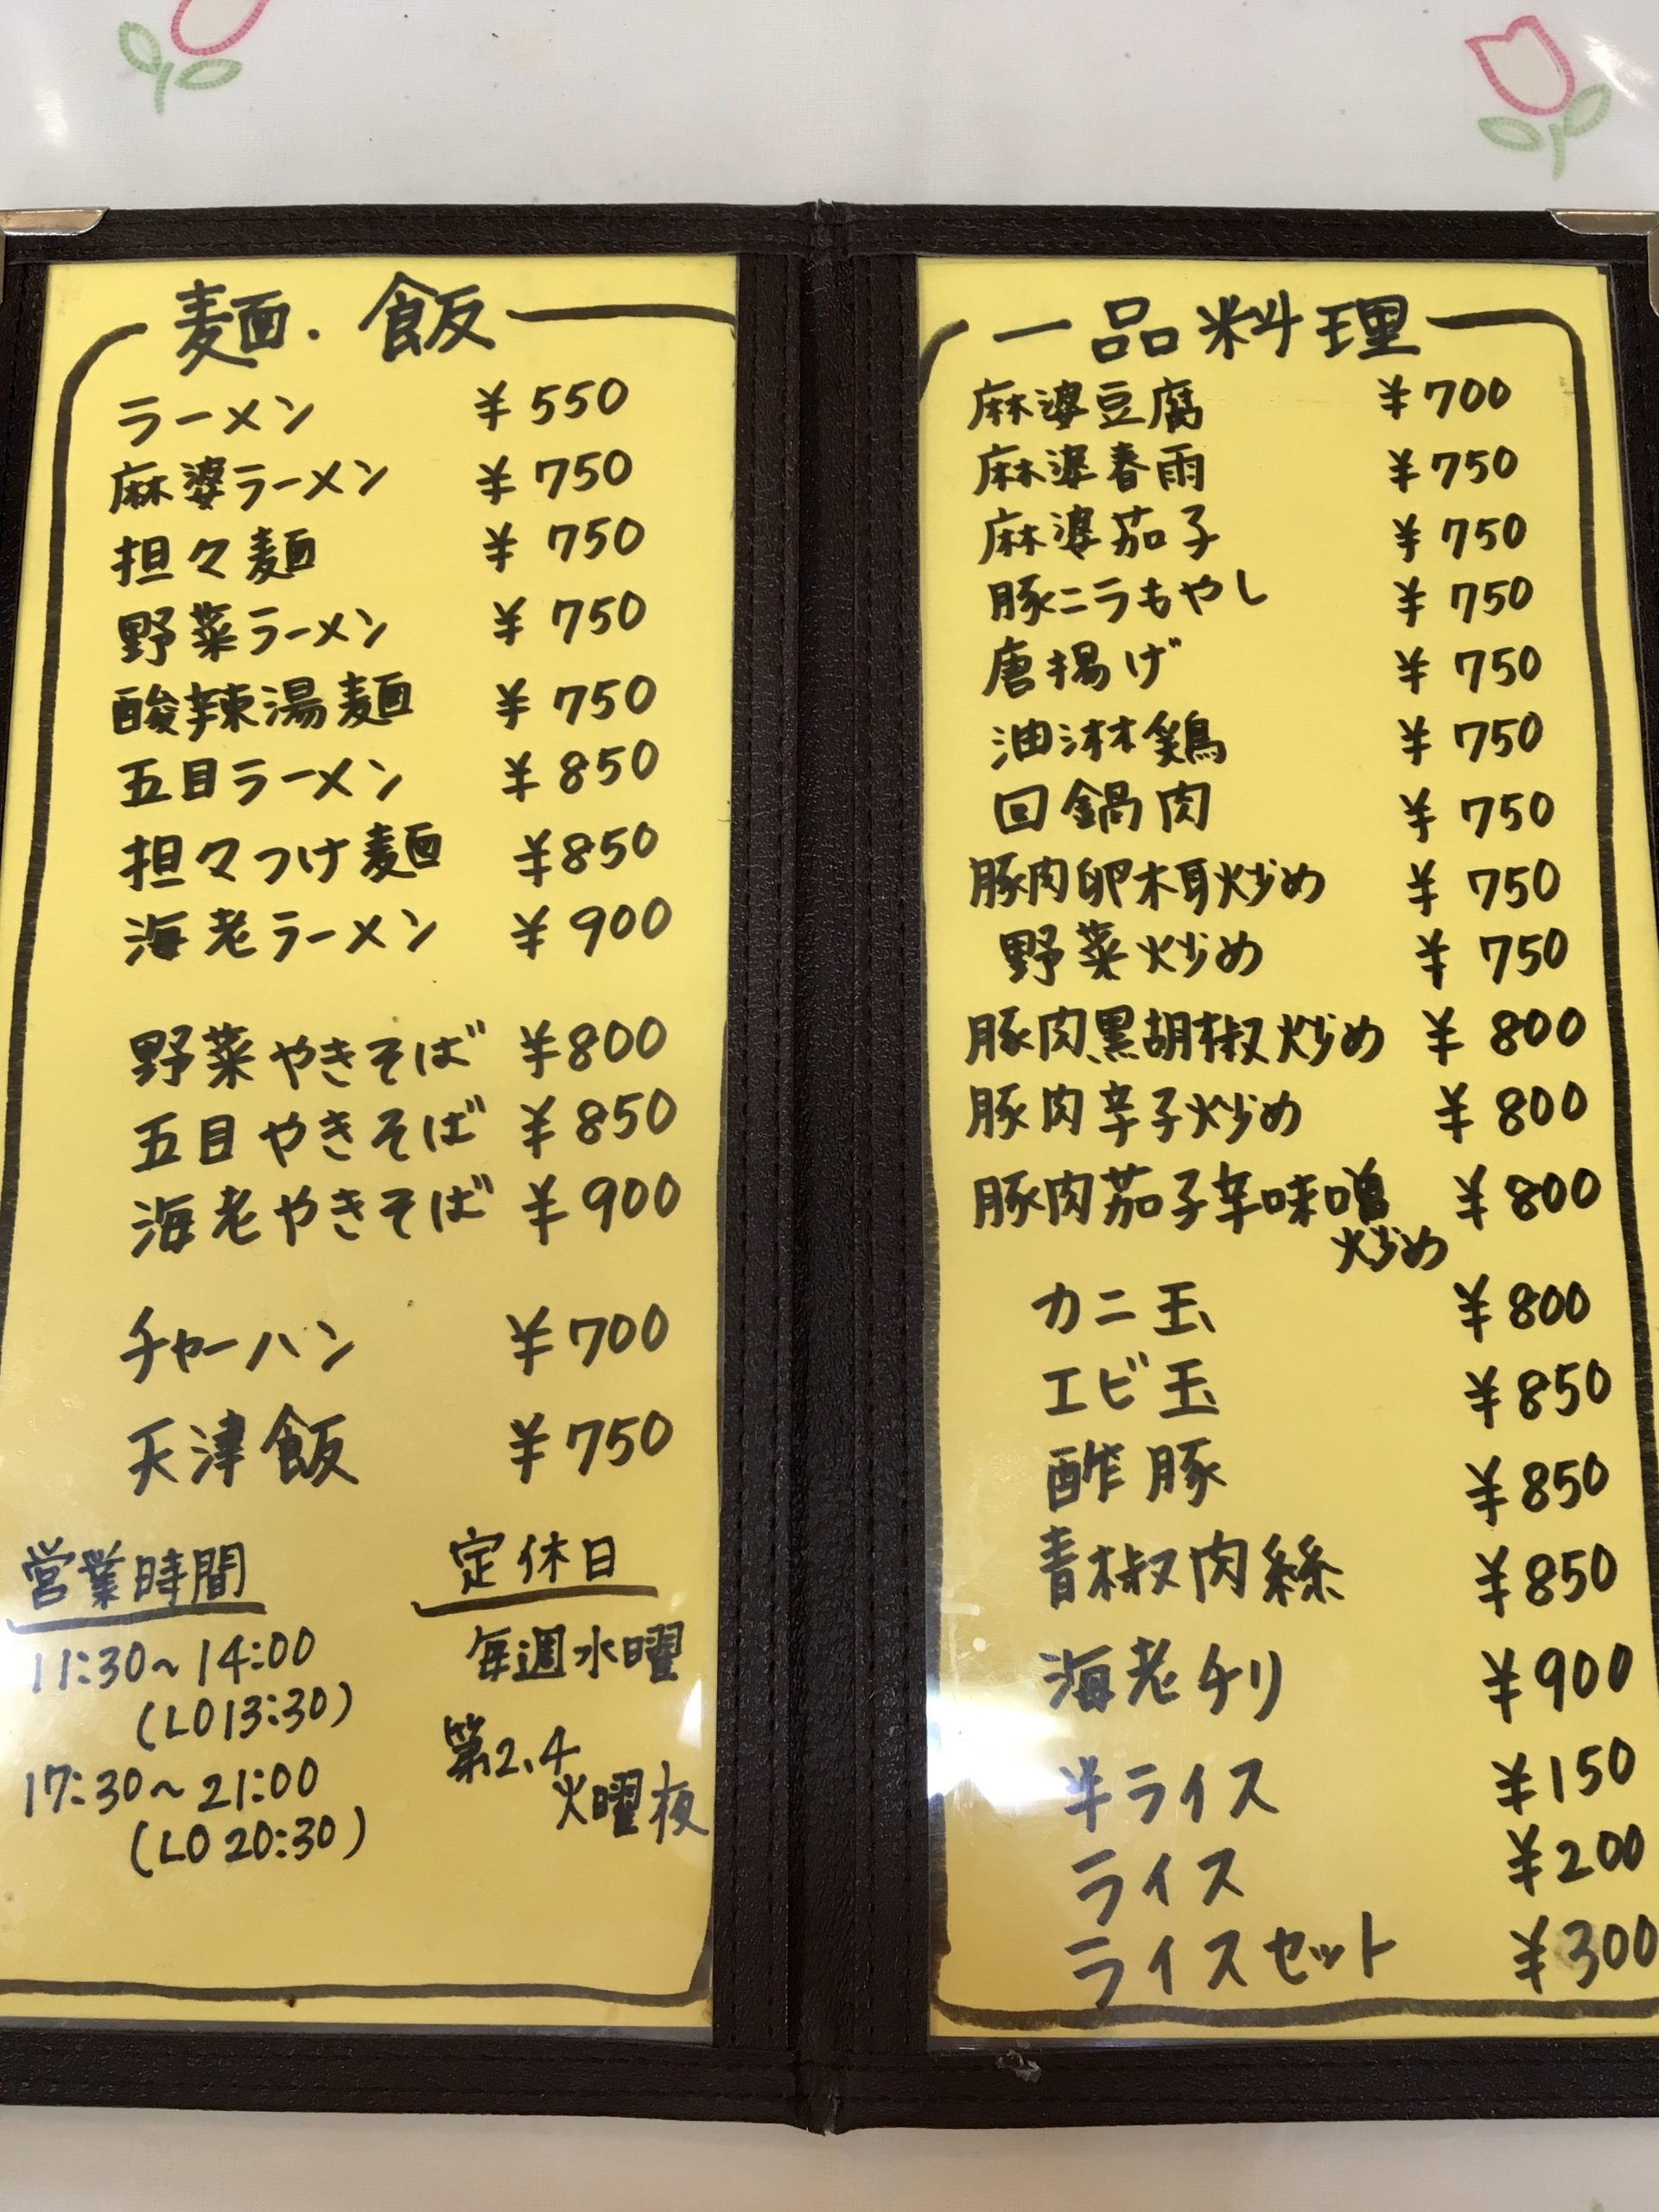 麺.飯
ラーメン ¥550
麻婆ラーメン ¥750
担々麺 ¥750
野菜ラーメン ¥750
酸辣湯麺 ¥750
五目ラーメン ¥850
担々つけ麺 ¥850
海老ラーメン ¥900
野菜やきそば ¥800
五目やきそば ¥850
海老やきそば ¥900
チャーハン ¥700
天津飯 ¥750
営業時間
11:30~14:00
(LO13:30)
17:30~21:00
(LO20:30)
定休日
毎週水曜
第2.4
火曜夜
一品料理
麻婆豆腐 ¥700
麻婆春雨 ¥750
麻婆茄子 ¥750
豚ニラもやし ¥750
唐揚げ ¥750
油淋鶏 ¥750
回鍋肉 ¥750
豚肉卵木耳炒め ¥750
野菜炒め ¥750
豚肉黒胡椒炒め ¥800
豚肉辛子炒め ¥800
豚肉茄子辛味噌 ¥800
炒め
カニ玉 ¥800
エビ玉 ¥850
酢豚 ¥850
青椒肉絲 ¥850
海老チリ ¥900
半ライス ¥150
ライス ¥200
ライスセット ¥300